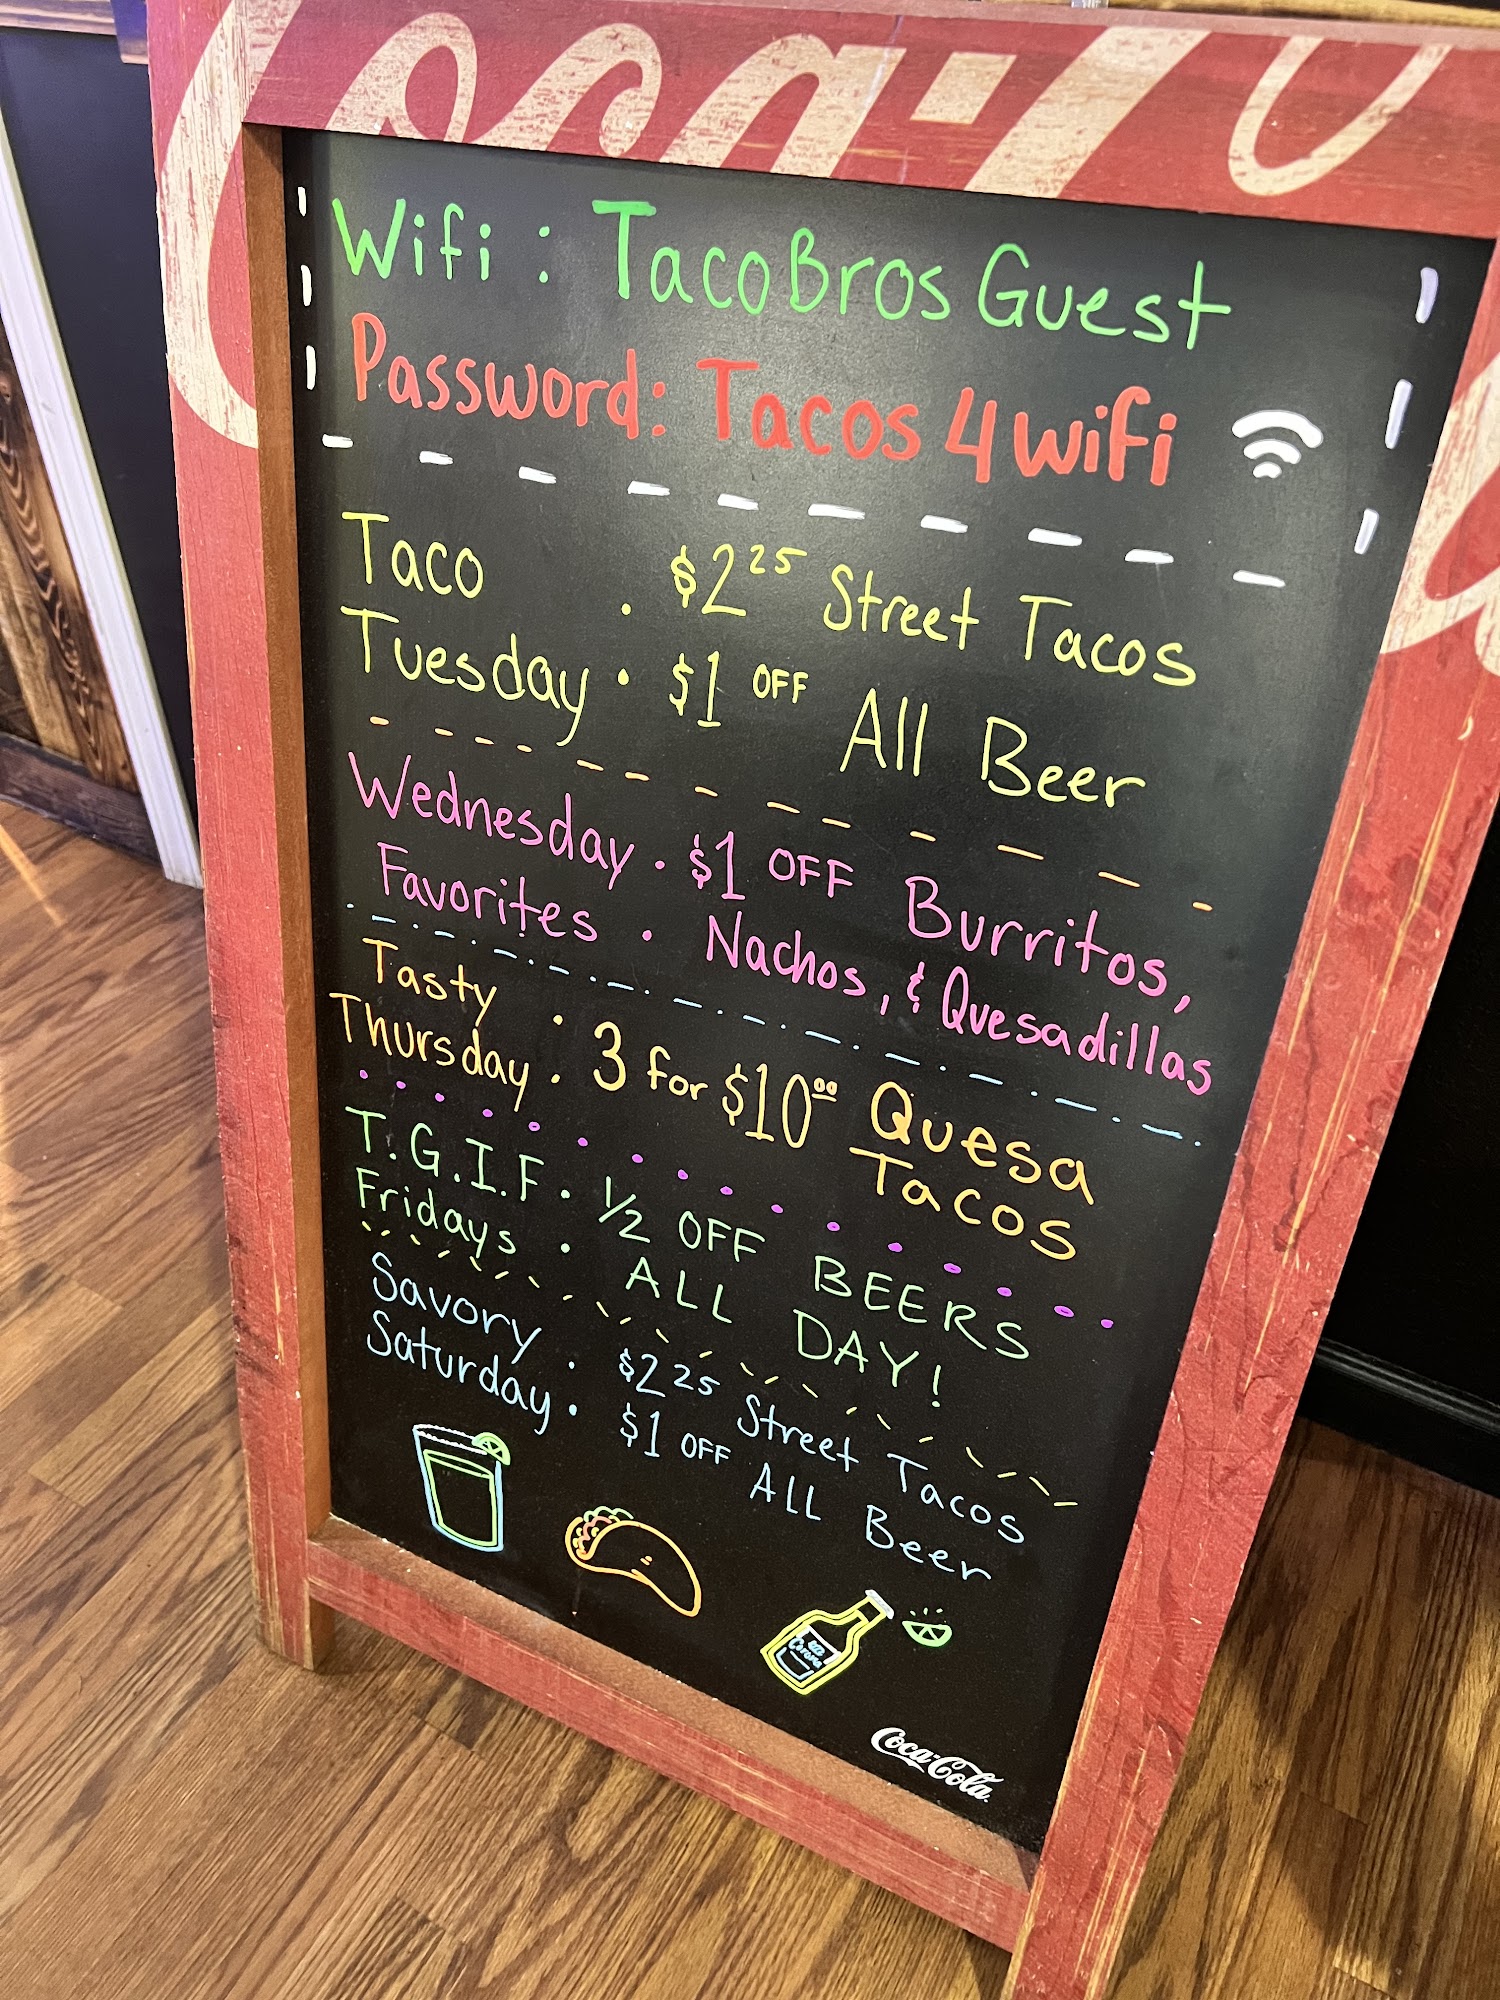 Coca-Co
Wifi : TacoBros Guest
Password: Tacos4wifi
Taco . $2 25 Street Tacos
Tuesday . $1 OFF All Beer
Wednesday . $1 OFF Burritos,
Favorites . Nachos, & Quesadillas
Tasty . 3 for $10 00 Quesa
Thursday . Tacos
T.G.I.F . 1/2 OFF BEERS
Fridays . ALL DAY!
Savory . $2 25 Street Tacos
Saturday . $1 OFF ALL Beer
Corona
Coca-Cola